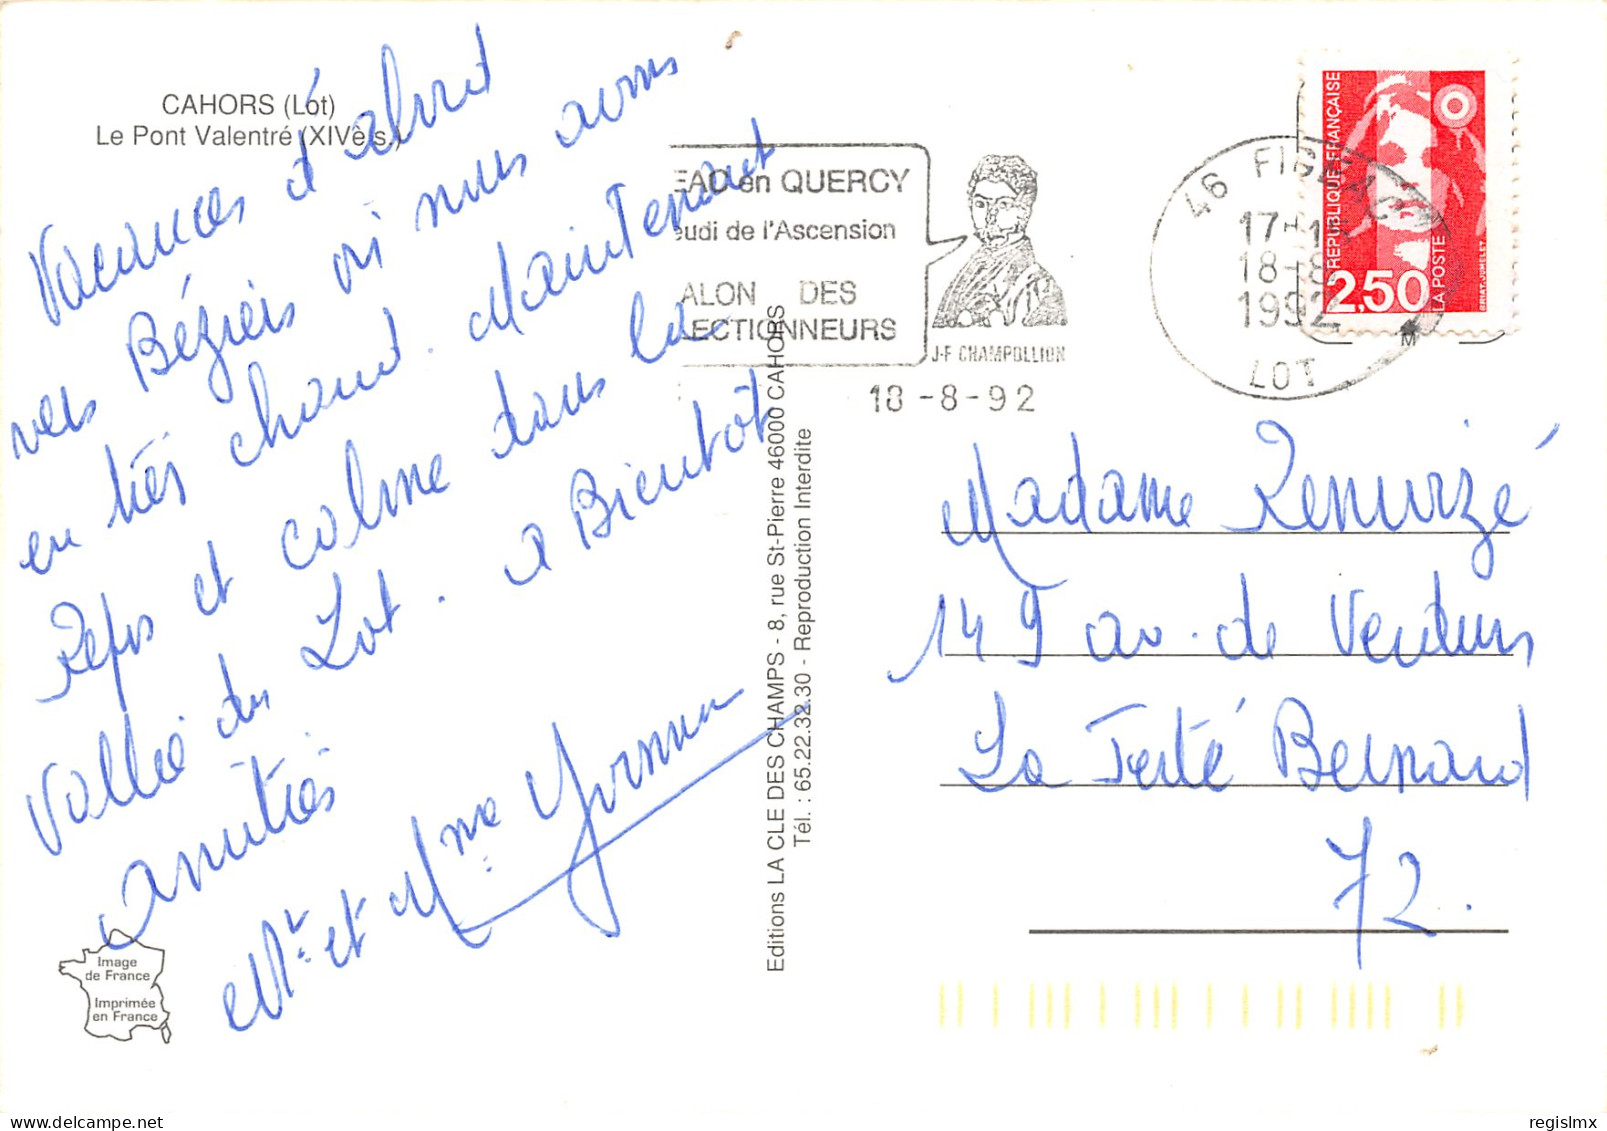 CAHORS (Lot)
Le Pont Valentré (XIVè s.)
Vacances d'abord
vers Béziers où nous avons
eu très chaud. Maintenant
Repos et calme dans la
Vallée du Lot. a Bientôt
amitiés
Mr et Mme
Image
de France
Imprimée
en France
Editions LA CLE DES CHAMPS - 8, rue St-Pierre 46000 CAHORS
Tél. : 65.22.32.30 - Reproduction Interdite
EAC en QUERCY
eudi de l'Ascension
ALON DES
LECTIONNEURS
J-F CHAMPOLLION
18-8-92
46 FIGEAC
17H15
18-8
1992
LOT
REPUBLIQUE FRANÇAISE
2,50
LA POSTE
BRIAT-JUMELET
M
Madame
149 av. de Verdun
La Ferté Bernard
72.
regislmx